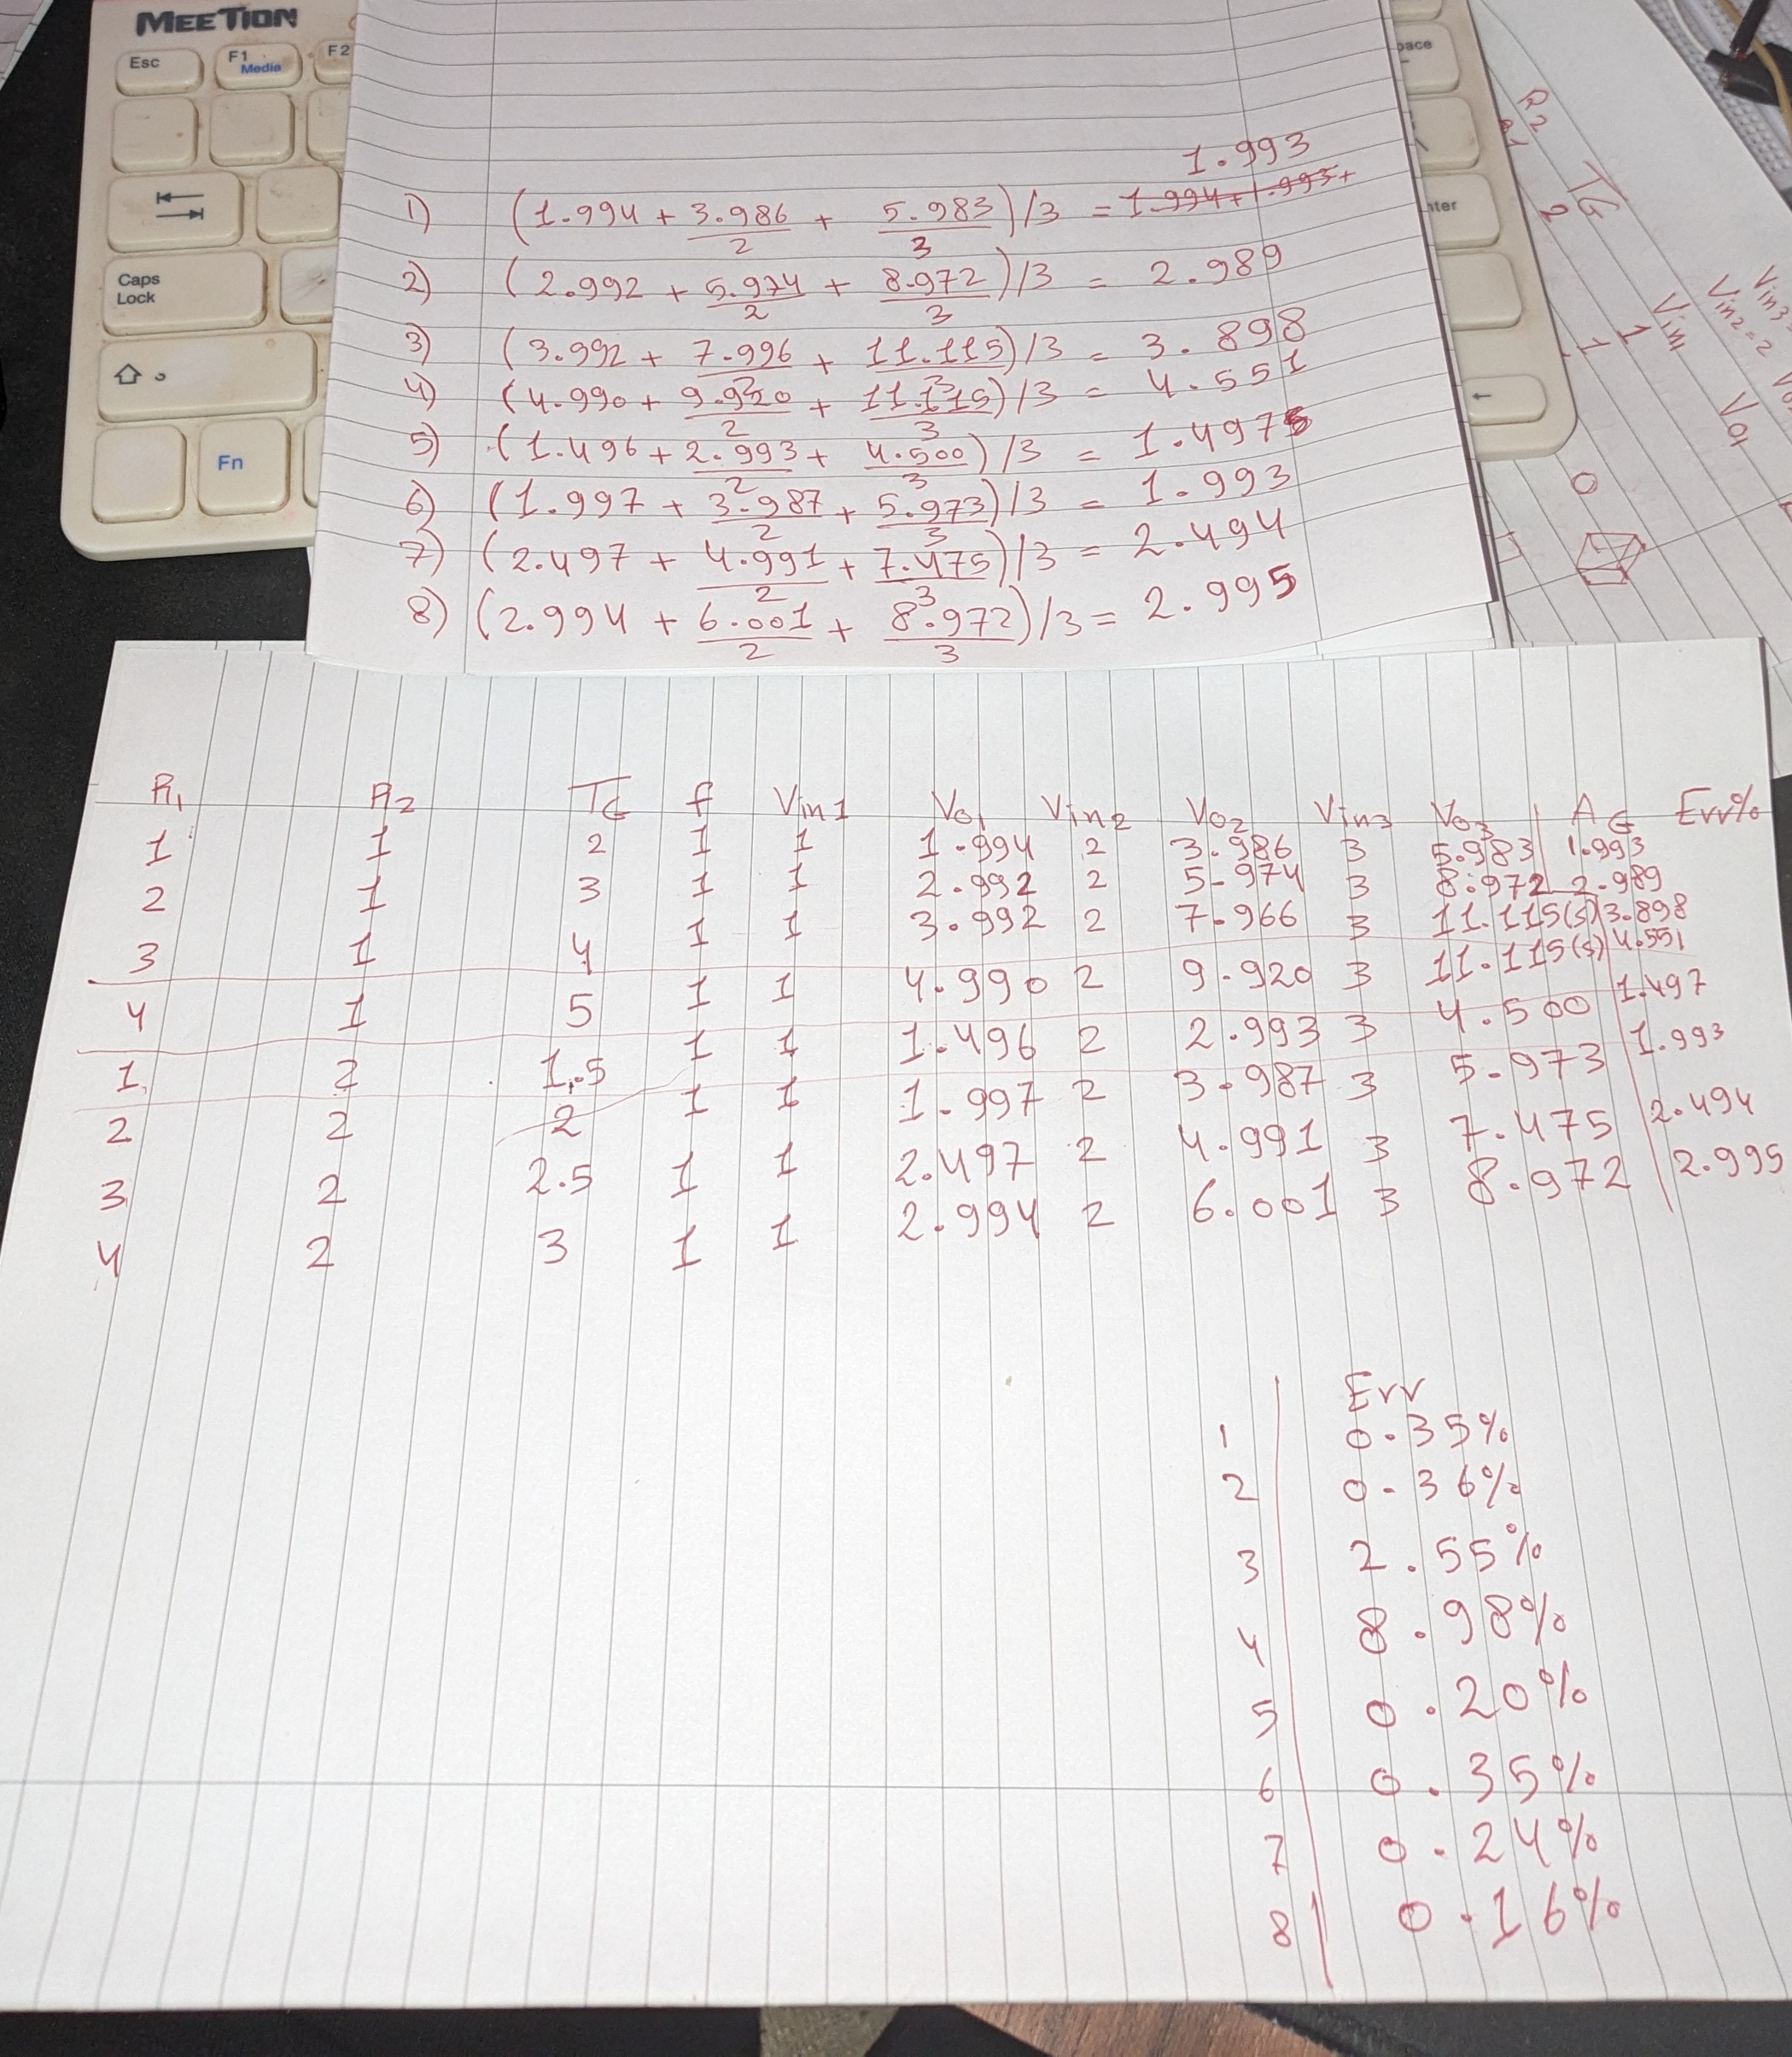 MEETION
Esc F1 Media F2
Caps Lock
Fn
pace
1.993
1) (1.994 + 3.986/2 + 5.983/3)/3 = 1.994 + 1.993 +
2) (2.992 + 5.974/2 + 8.972/3)/3 = 2.989
3) (3.992 + 7.996/2 + 11.115/3)/3 = 3.898
4) (4.990 + 9.920/2 + 11.115/3)/3 = 4.551
5) (1.496 + 2.993/2 + 4.500/3)/3 = 1.497
6) (1.997 + 3.987/2 + 5.973/3)/3 = 1.993
7) (2.497 + 4.991/2 + 7.475/3)/3 = 2.494
8) (2.994 + 6.001/2 + 8.972/3)/3 = 2.995
R2 TG Vin Vin2=2 Vin3
2 1 1 Vo1
0
R1 R2 TG f Vin1 Vo1 Vin2 Vo2 Vin3 Vo3 AG Err%
1 1 2 1 1 1.994 2 3.986 3 5.983 1.993
2 1 3 1 1 2.992 2 5.974 3 8.972 2.989
3 1 4 1 1 3.992 2 7.966 3 11.115(s) 3.898
4 1 5 1 1 4.990 2 9.920 3 11.115(s) 4.551
1 2 1.5 1 1 1.496 2 2.993 3 4.500 1.497
2 2 2 1 1 1.997 2 3.987 3 5.973 1.993
3 2 2.5 1 1 2.497 2 4.991 3 7.475 2.494
4 2 3 1 1 2.994 2 6.001 3 8.972 2.995
Err
1 0.35%
2 0.36%
3 2.55%
4 8.98%
5 0.20%
6 0.35%
7 0.24%
8 0.16%